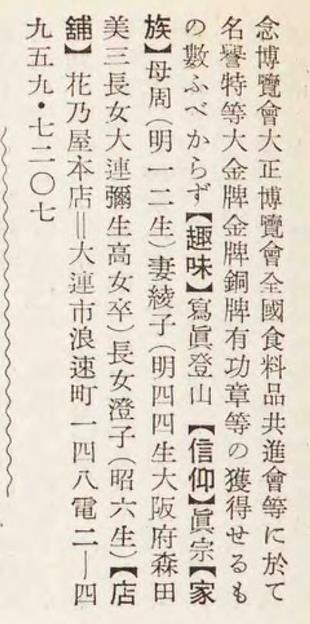 念博覽會大正博覽會全國食料品共進會等に於て
名譽特等大金牌金牌銅牌有功章等の獲得せるも
の數ふべからず【趣味】寫眞登山【信仰】眞宗【家
族】母周(明一二生)妻綾子(明四四生大阪府森田
美三長女大連彌生高女卒)長女澄子(昭六生)【店
鋪】花乃屋本店‖大連市浪速町一四八電二―四
九五九・七二〇七